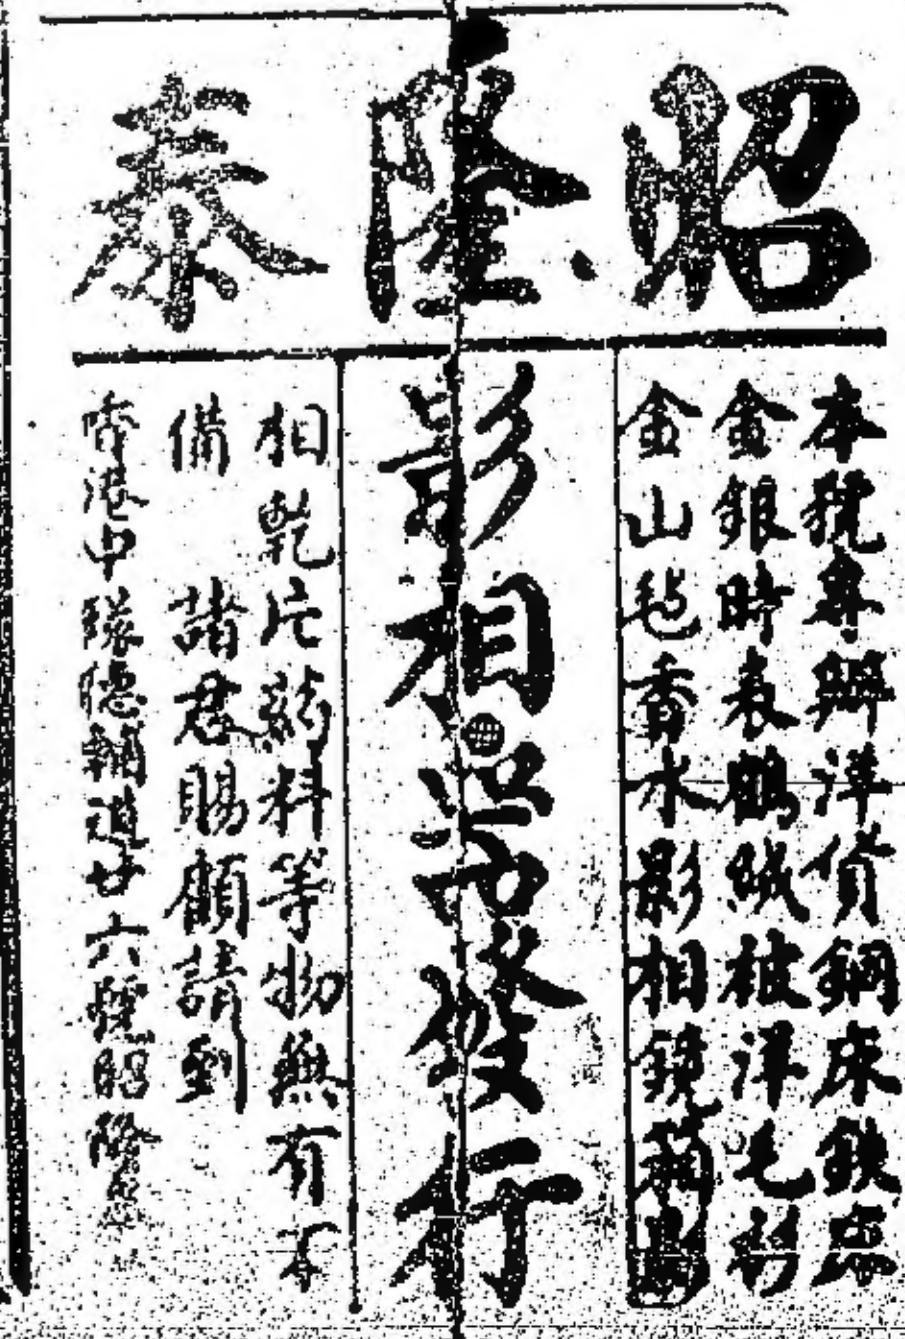 昭隆泰
本號專辦洋貨鋼床鉄床
金銀時表鶴絨被洋毛衫
金山毡香水影相鏡箱
影相噐發行
相乾片葯料等物無有不
備 諸君賜顧請到
香港中環德輔道廿六號昭隆